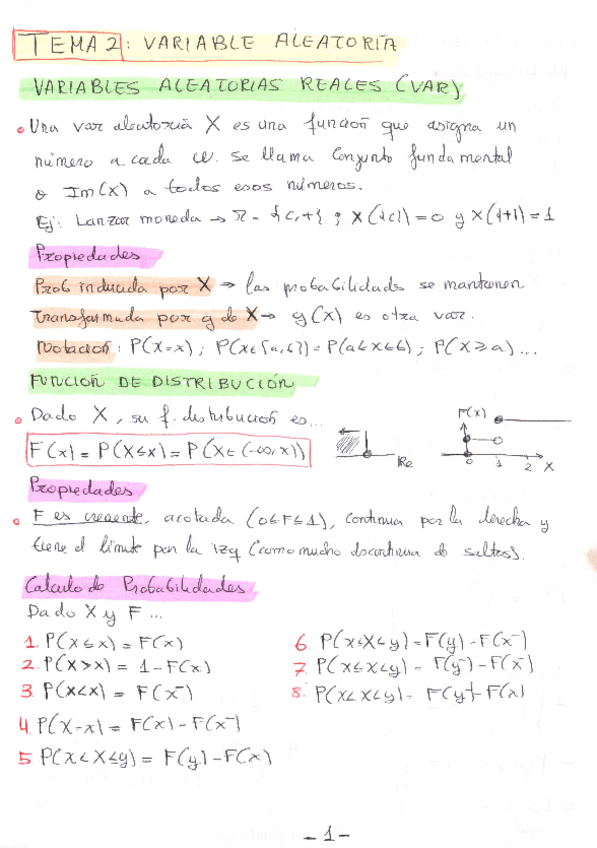 TEMA 2: VARIABLE ALEATORIA
VARIABLES ALEATORIAS REALES (VAR)
Una var aleatoria X es una función que asigna un
número a cada w. Se llama Conjunto fundamental
o Im(x) a todos esos números.
Ej: Lanzar moneda → Ω = {c,+} ; X({c}) = 0 y X({+}) = 1
Propiedades
Prob inducida por X → las probabilidades se mantienen
Transformada por g de X → g(x) es otra var.
Notación: P(X=x) ; P(X∈[a,b]) = P(a≤x≤b) ; P(X≥a) ...
FUNCIÓN DE DISTRIBUCIÓN
Dado X, su f. distribución es...
F(x) = P(X≤x) = P(X∈(-∞,x))
Re
F(x)
0 1 2 X
Propiedades
F es creciente, acotada (0≤F≤1), continua por la derecha y
tiene el límite por la izq (como mucho discontinua de saltos).
Calculo de Probabilidades
Dado X y F ...
1. P(X≤x) = F(x)
2. P(X>x) = 1-F(x)
3. P(X<x) = F(x⁻)
4. P(X=x) = F(x) - F(x⁻)
5 P(x<X≤y) = F(y) - F(x)
6. P(x≤X≤y) = F(y) - F(x⁻)
7. P(x≤X<y) = F(y⁻) - F(x⁻)
8. P(x<X<y) = F(y⁻) - F(x)
- 1 -